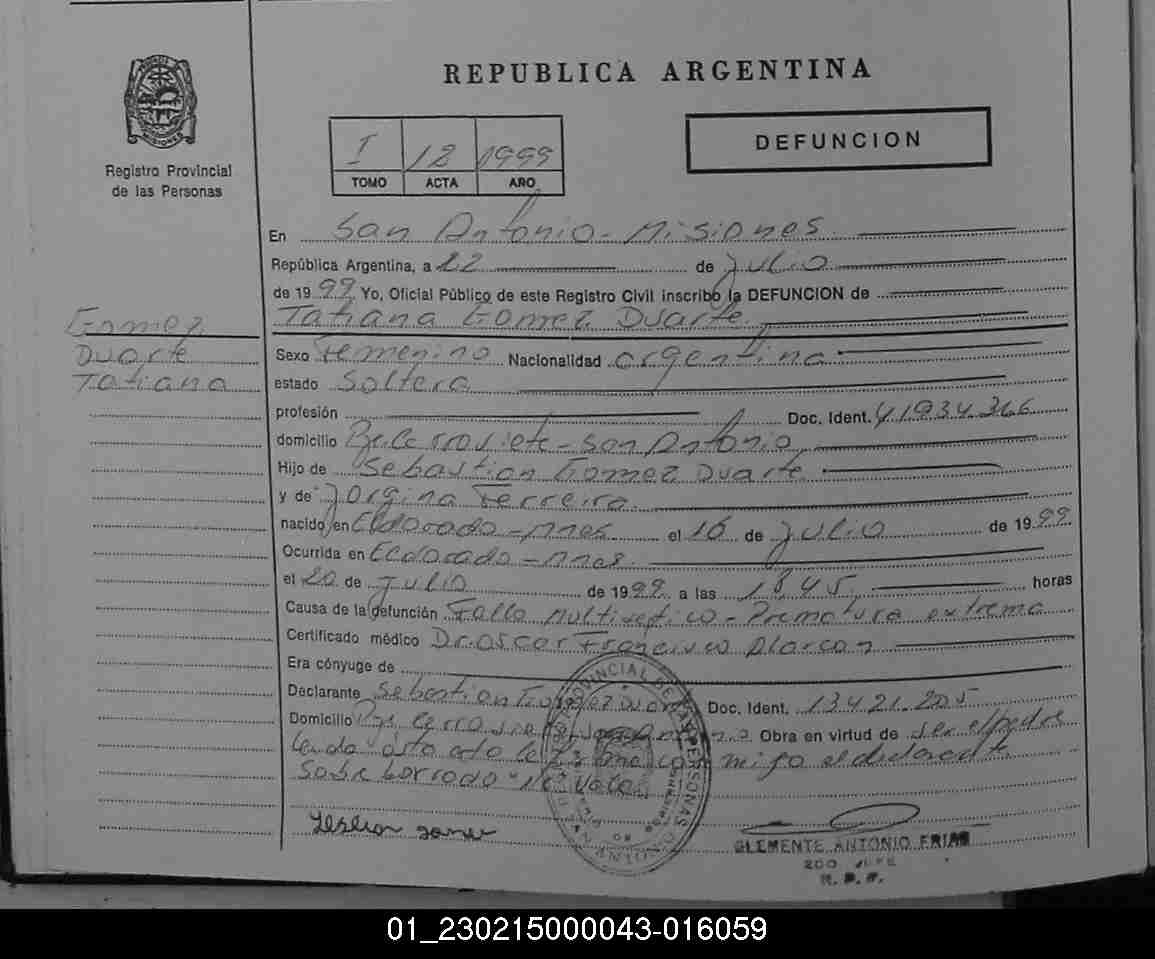 REPUBLICA ARGENTINA
PROVINCIA DE MISIONES
Registro Provincial
de las Personas
DEFUNCION
I 12 1999
TOMO ACTA AÑO
En San Antonio - Misiones
República Argentina, a 22 de Julio
de 1999 Yo, Oficial Público de este Registro Civil inscribo la DEFUNCION de
Tatiana Gomez Duarte.
Gomez
Duarte
Tatiana
Sexo Femenino Nacionalidad argentina
estado Soltera
profesión Doc. Ident. 41934366
domicilio San Antonio
Hijo de Sebastian Gomez Duarte.
y de Jorgina Ferreira.
nacido en Eldorado - Mnes el 16 de Julio de 1999
Ocurrida en Eldorado - Mnes.
el 20 de Julio de 1999 a las 18,45 horas
Causa de la defunción Falla Multiseptico - Prematura extrema
Certificado médico Dr. Oscar Francisco Alarcon
Era cónyuge de
Declarante Sebastian Gomez Duarte Doc. Ident. 13421.205
Domicilio Obra en virtud de ser el padre
Leida esta acta la firma conmigo el declarante
Sobre borrado
CLEMENTE ANTONIO FRIAS
2DO JEFE
R. P. P.
01_230215000043-016059